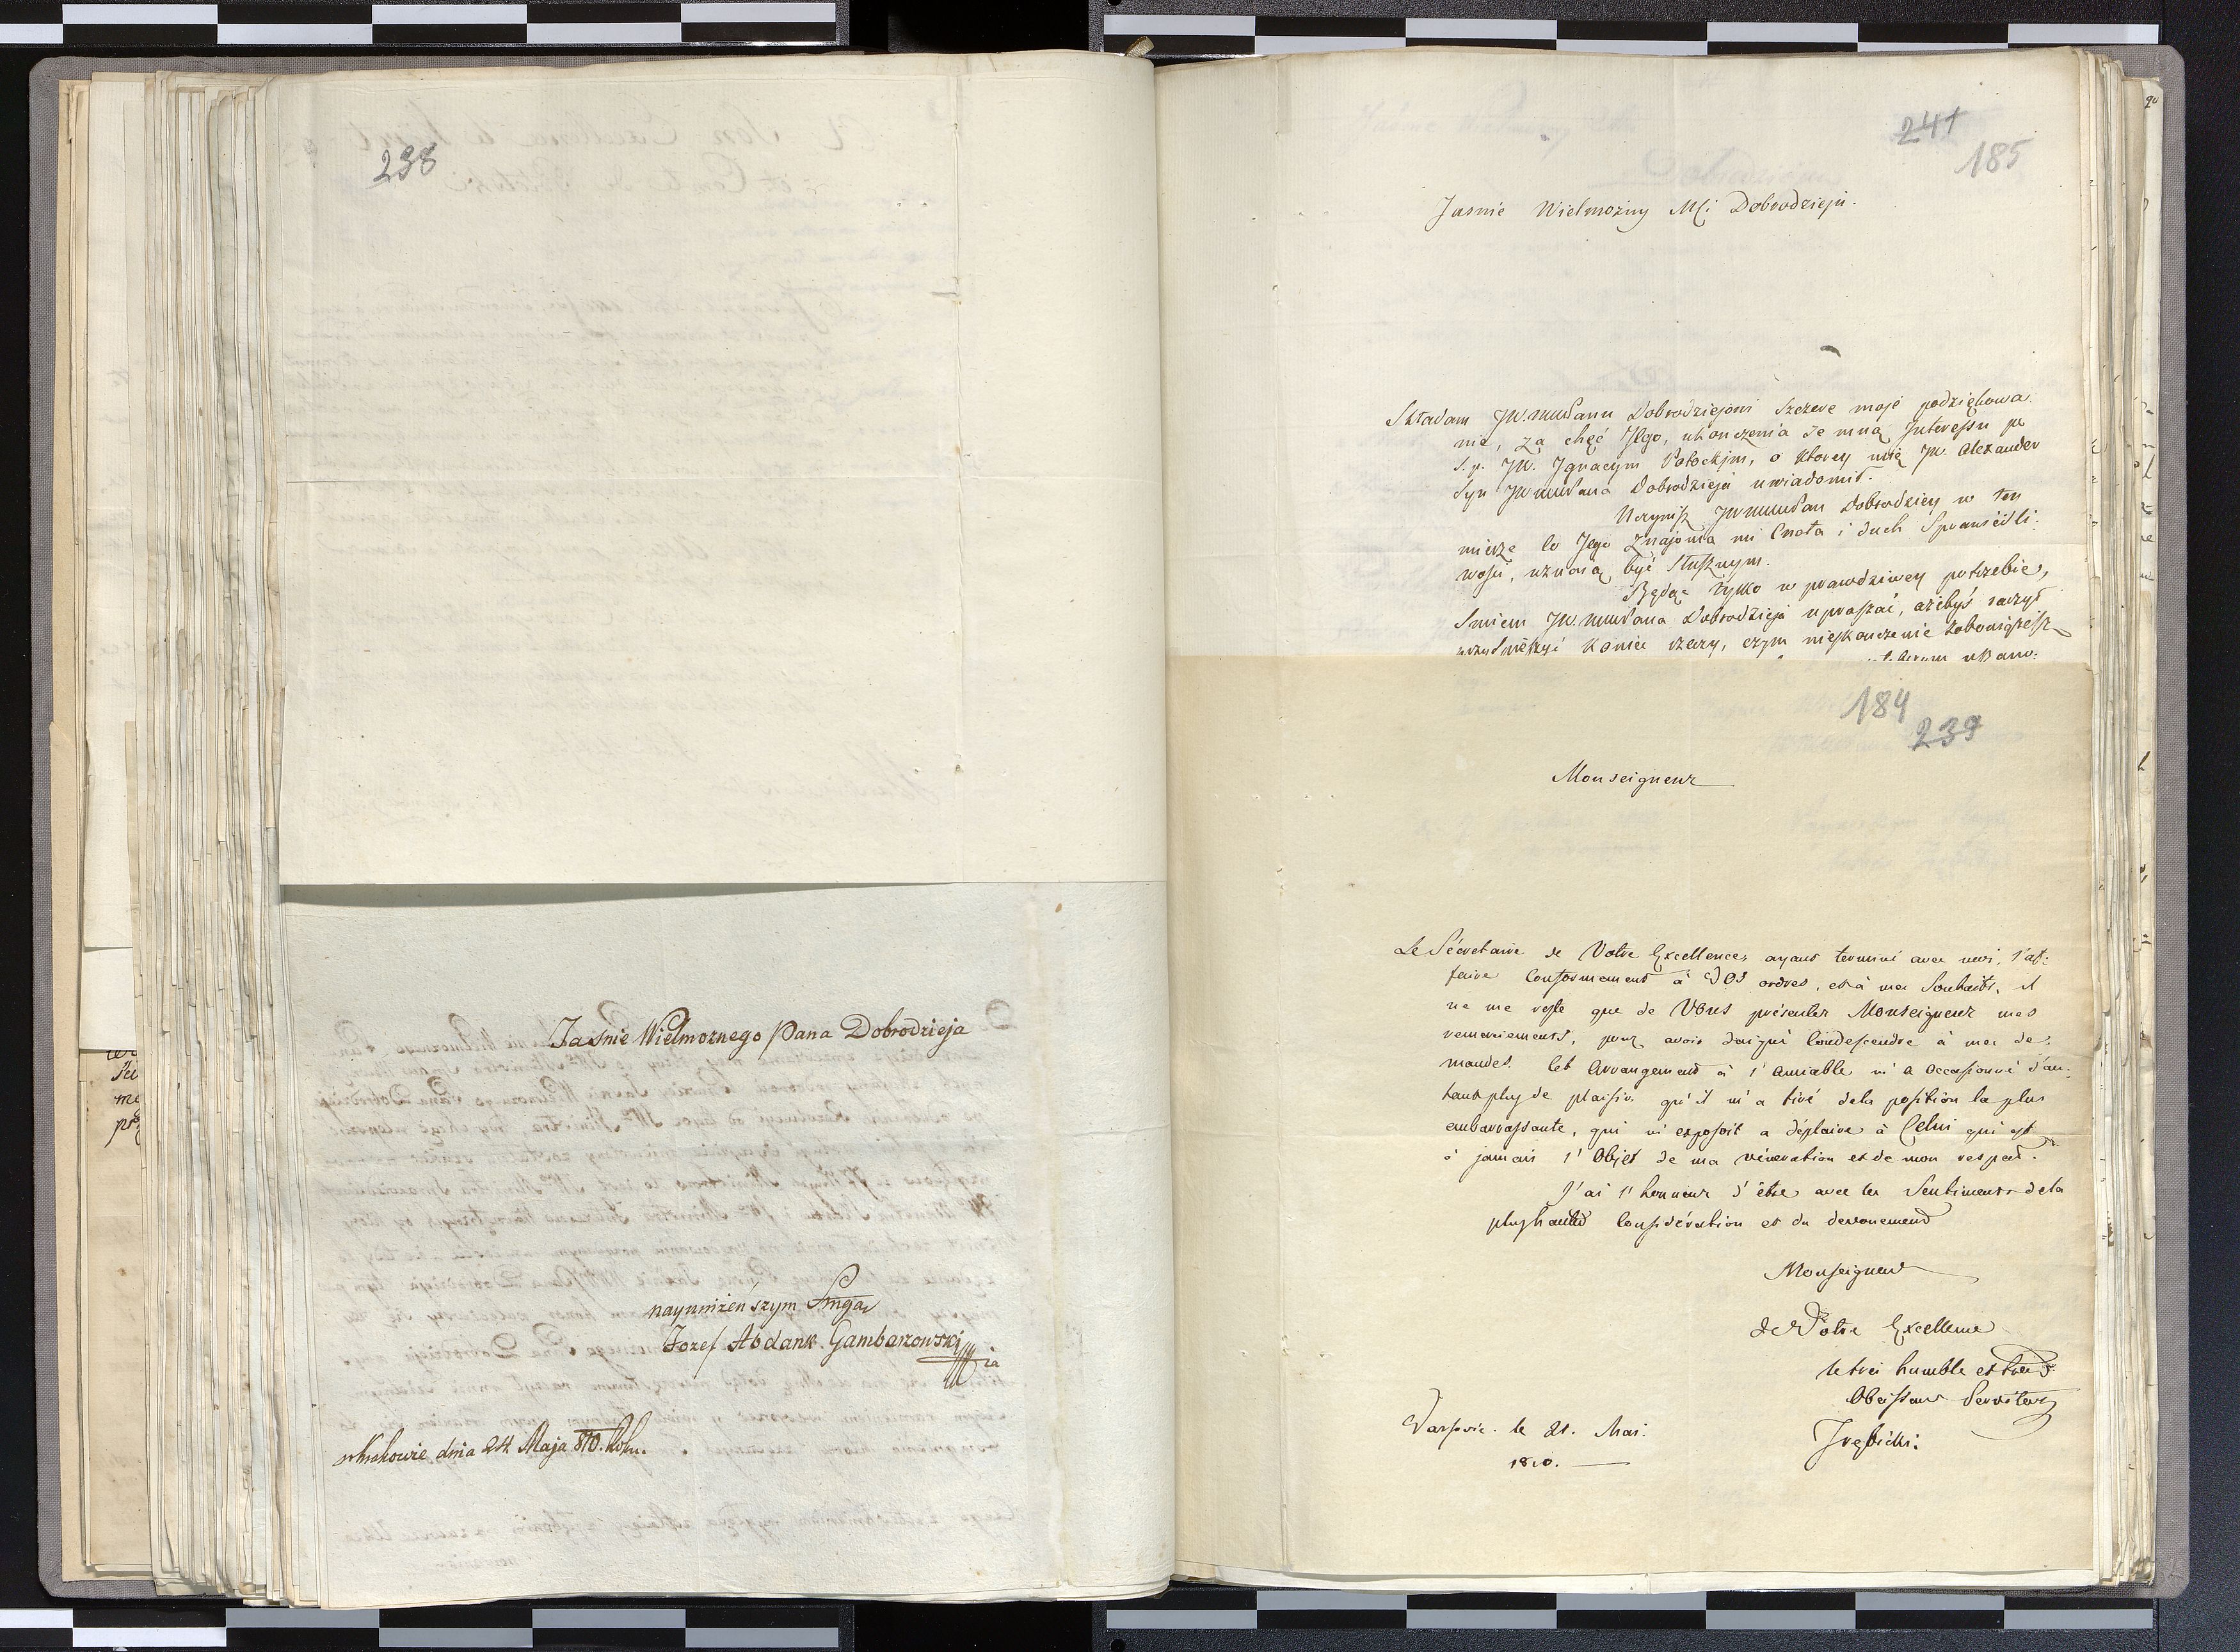 238
Jaśnie Wielmoznego Pana Dobrodzieja
nayuniżeńszym Sługą
Jozef Abdank Gambarzowski
dnia 24 Maja 810. Roku.
241
185
Jasnie Wielmożny Mći Dobrodzieju.
Składam JW. Panu Dobrodziejowi Szczere moje podziękowa
nie, za chęć Jego, ukończenia ze mną Interessu po
s. p. JW. Ignacym Potockim, o ktorey mię JW. Alexander
Syn JW Pana Dobrodzieja uwiadomił.
Uczynisz JW Pan Dobrodziey w tey
mierze co Jego Znajoma mi Cnota i duch Sprawiedli:
wości, uznaią być Słusznym.
Będąc tylko w prawdziwey potrzebie,
Smiem JW. Pana Dobrodzieja upraszać, ażebyś raczył
koniec rzeczy, czym nieskończenie
184
239
Monseigneur
Le Sécretaire de Votre Excellence, ayant terminé avec moi, l'af:
faire Conformement à Vos ordres, et à mes Souhaits, il
ne me reste que de Vous présenter Monseigneur mes
remerciements, pour avoir daigné Condescendre à mes de:
mandes. Cet Arrangement à l'Amiable m'a Occasionné d'au:
tant plus de plaisir qu'il m'a tiré dela position la plus
embarrassante, qui m'exposoit a déplaire à Celui qui est
à jamais l'Objet de ma vénération et de mon respect.
J'ai l'honneur d'être avec les Sentiments dela
plus haute Considération et du devouement
Monseigneur
de Votre Excellence
le très humble et très
Obeissant Serviteur
Varsovie. le 21. Mai.
1810.
Trębicki.